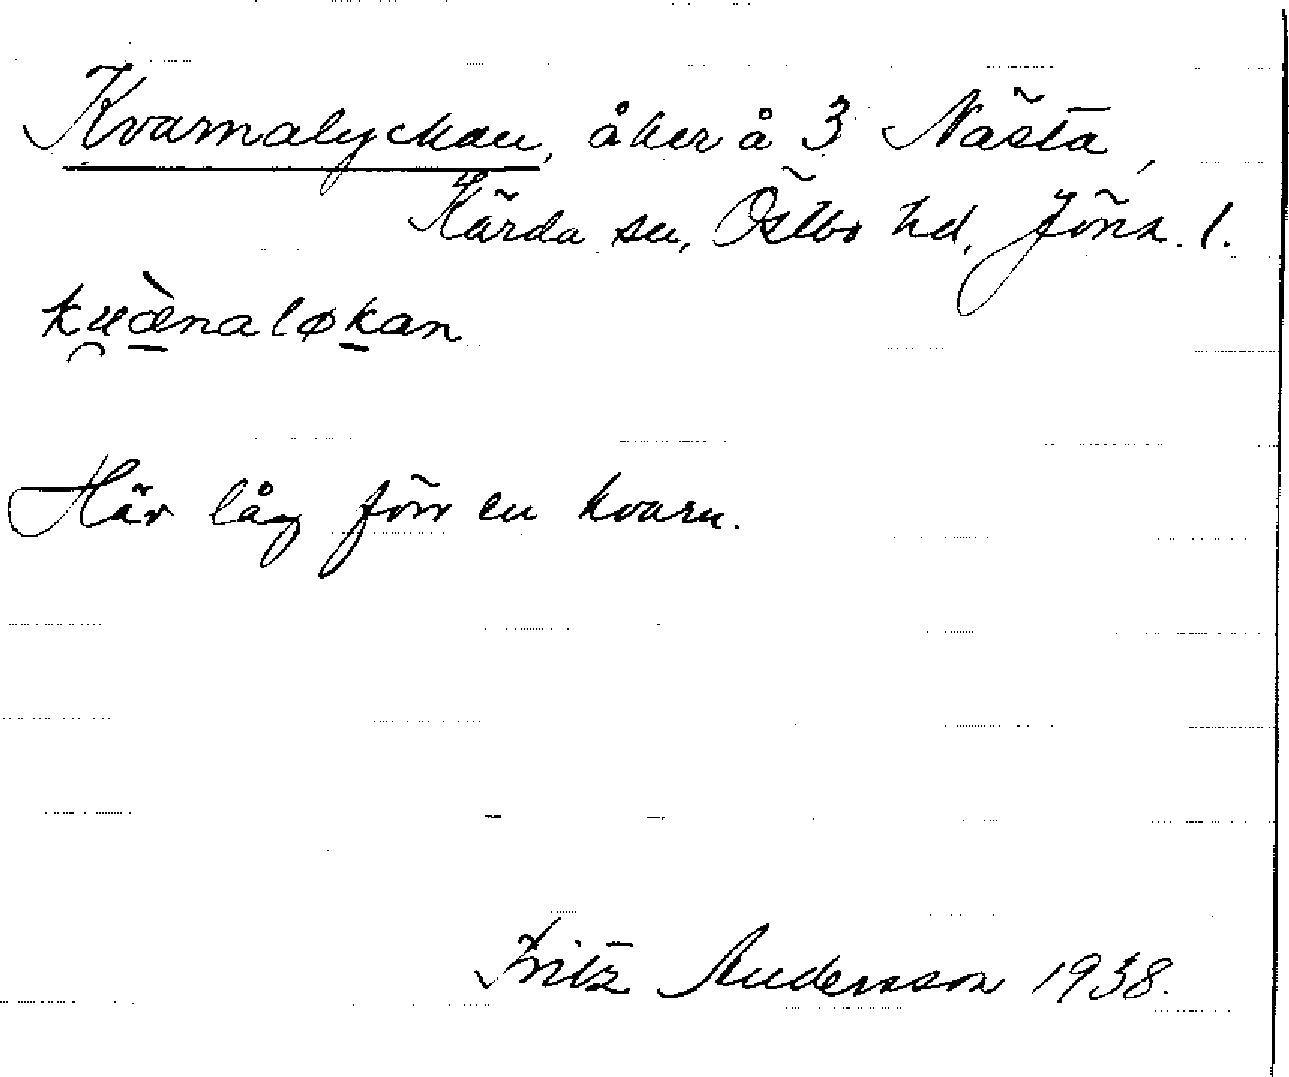 Kvarnalyckan, åker å 3 Nästa,
Kärda sn, Östbo hd, Jönk. l.
ku̯æ̀naløkan
Här låg förr en kvarn.
Fritz Andersson 1938.